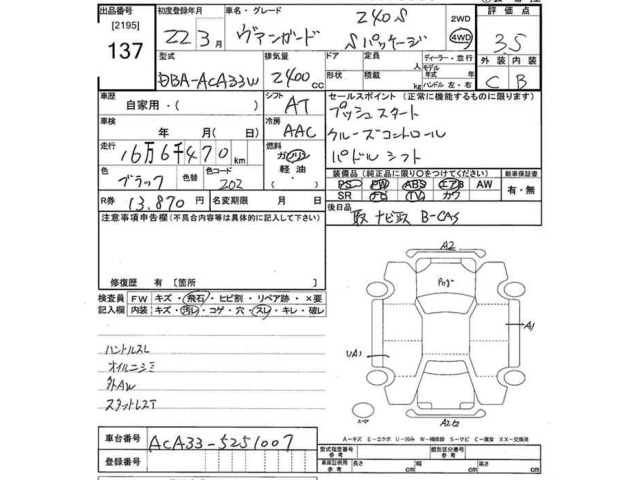 出品番号 初度登録年月 車名・グレード 240S 2WD 評価点
[2195] 22年3月 ヴァンガード Sパッケージ 4WD 3.5
137 外装 内装
型式 排気量 ドア 定員 ディーラー・並行
DBA-ACA33W 2400cc 形状 積載 人 kg モデル年式 年 ハンドル 左・右 C B
車歴 シフト セールスポイント (正常に機能するものに限ります)
自家用・( ) AT プッシュスタート
車検 冷房 クルーズコントロール
年 月(日) AAC パドルシフト
走行 16万6千470km 燃料 ガソリン
軽油
色 色替 色コード 装備品 (純正品に限り○をつけてください) 新車保証書
ブラック 202 PS PW ABS エアB AW 有・無
SR TV カワ
R券 13,870円 名変期限 月 日 後日品
取 ナビ取 B-CAS
注意事項申告欄(不具合内容等は具体的に記入して下さい)
修復歴 有 [箇所 ]
A2
検査員 FW キズ・飛石・ヒビ割・リペア跡・×要
記入欄 内装 キズ・汚レ・コゲ・穴・スレ・キレ・破レ
UA1 A1
ハンドルスレ
オイルニジミ
外AW
スタットレスT
A2
A-キズ E-エクボ U-凹み W-補修跡 S-サビ C-腐食 XX-交換済
車台番号 ACA33-5251007
型式指定番号 参考 類別区分番号 参考
登録番号 車検証明用 参考 長さ cm 幅 cm 高さ cm